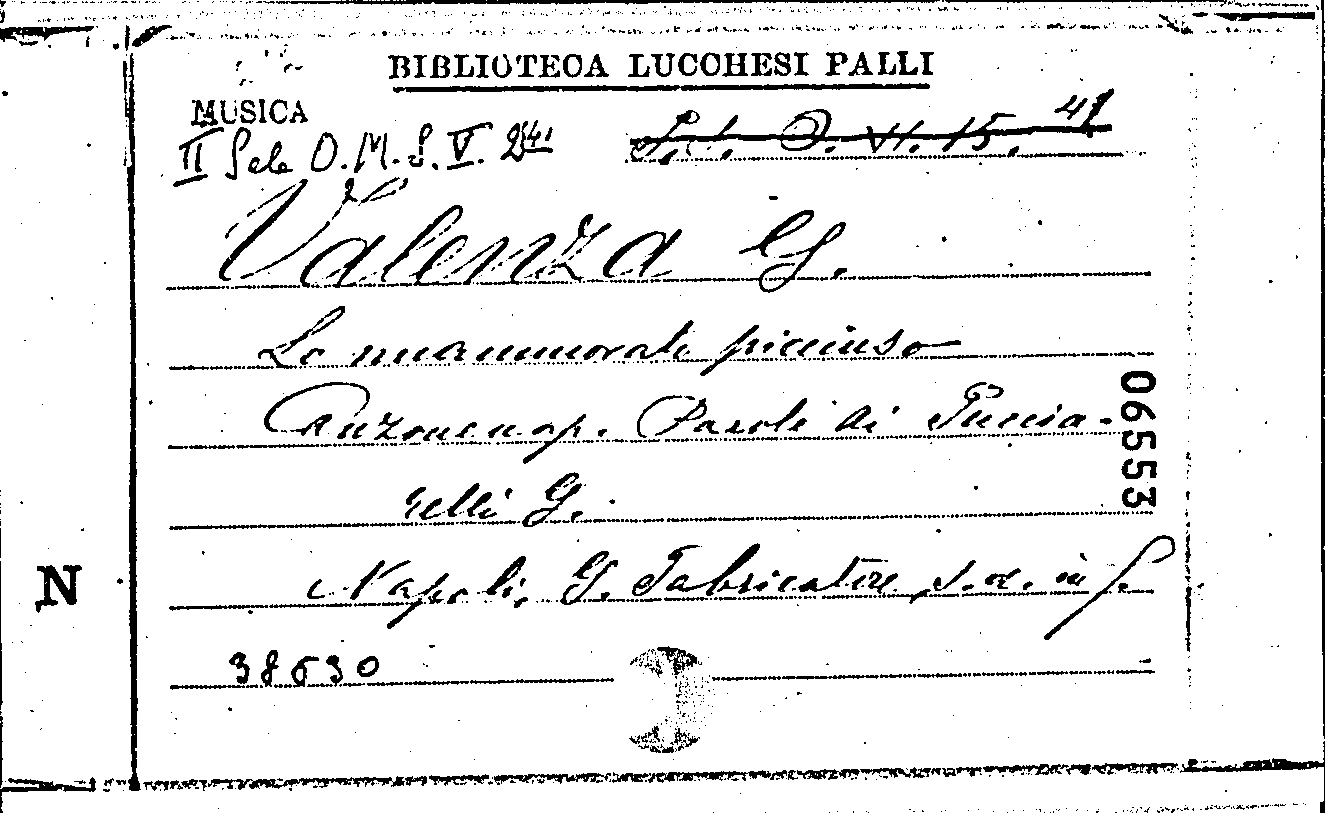 BIBLIOTECA LUCCHESI PALLI
MUSICA
II Sala O.M.S. V. 24¹
S.t. O. VI. 15. 41
Valenza G.
Lo nnammorato picciuso
Canzone nap. Parole di Puccia-
relli G.
Napoli, G. Fabricatore, s. d. in f.
38630
06553
N